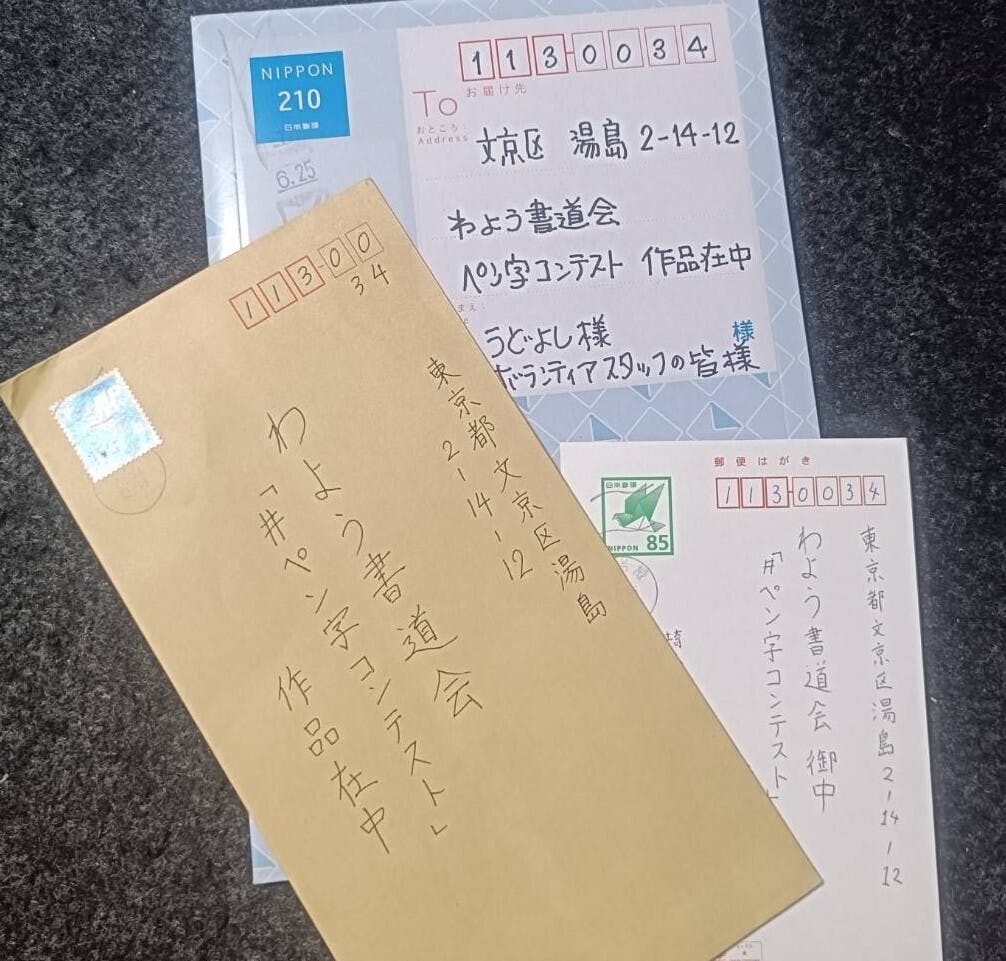 NIPPON
210
日本郵便
6.25
113-0034
To
お届け先
おところ:
Address
文京区 湯島 2-14-12
わよう書道会
ペン字コンテスト 作品在中
うどよし様
様
ボランティアスタッフの皆様
113-00
34
東京都文京区湯島
2-14-12
わよう書道会
「#ペン字コンテスト」
作品在中
郵便はがき
113-0034
日本郵便
NIPPON 85
東京都文京区湯島2-14-12
わよう書道会 御中
「#ペン字コンテスト」